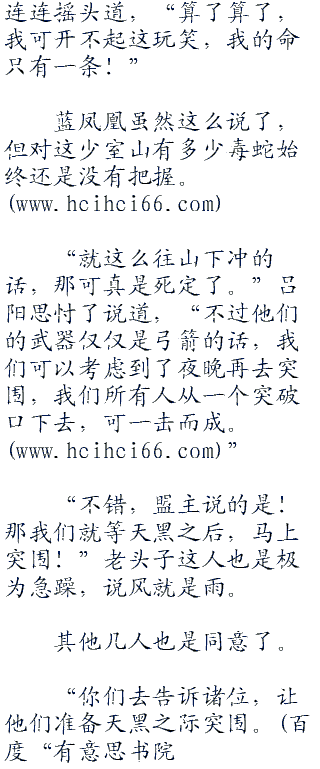 连连摇头道，“算了算了，
我可开不起这玩笑，我的命
只有一条！”
蓝凤凰虽然这么说了，
但对这少室山有多少毒蛇始
终还是没有把握。
(www.hcihci66.com)
“就这么往山下冲的
话，那可真是死定了。”吕
阳思忖了说道，“不过他们
的武器仅仅是弓箭的话，我
们可以考虑到了夜晚再去突
围，我们所有人从一个突破
口下去，可一击而成。
(www.hcihci66.com)”
“不错，盟主说的是！
那我们就等天黑之后，马上
突围！”老头子这人也是极
为急躁，说风就是雨。
其他几人也是同意了。
“你们去告诉诸位，让
他们准备天黑之际突围。(百
度“有意思书院